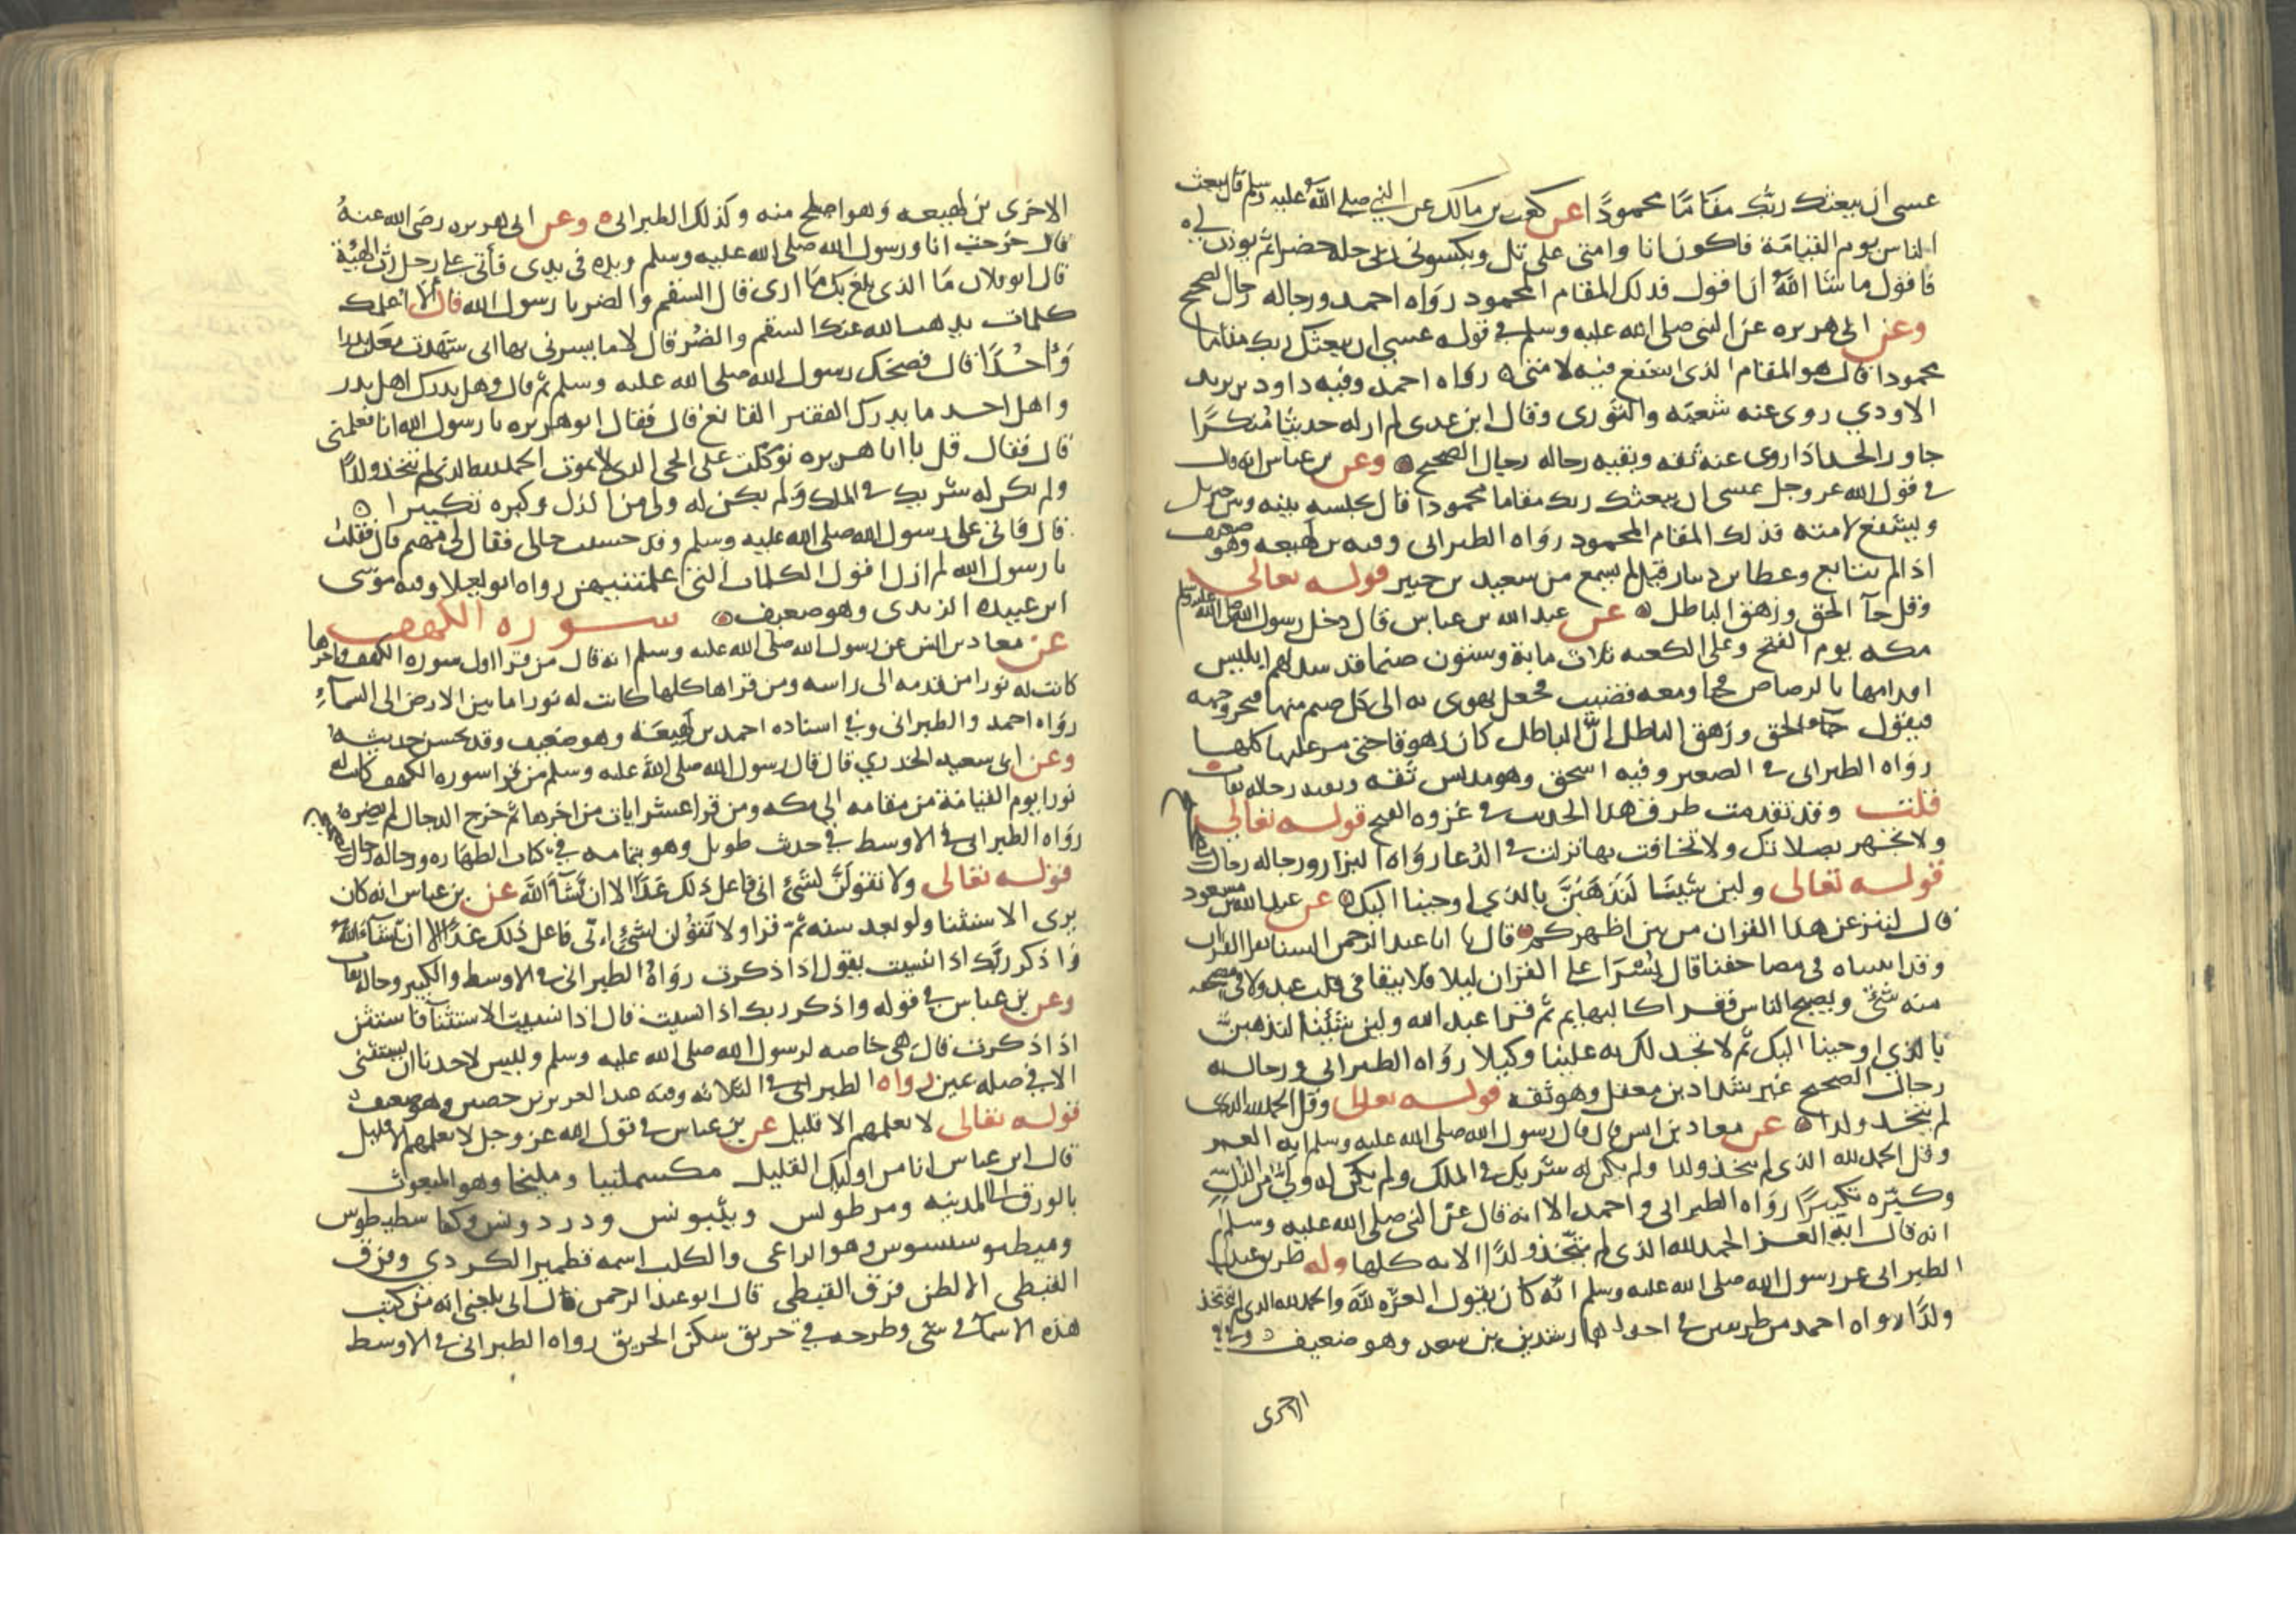 عسى ان يبعثك ربك مقاما محمودا عن كعب بن مالك عن النبي صلى الله عليه وسلم قال يبعث
الناس يوم القيامة فاكون انا وامتي على تل ويكسوني ربي حلة خضرا ثم يوذن لي
فاقول ما شا الله ان اقول فذلك المقام المحمود رواه احمد ورجاله رجال الصحيح
وعن ابي هريره عن النبي صلى الله عليه وسلم في قوله عسى ان يبعثك ربك مقاما
محمودا قال هو المقام الذي اشفع فيه لامتي رواه احمد وفيه داود بن يزيد
الاودي روى عنه شعبه والثوري وقال ابن عدي لم ار له حديثا منكرا
جاوز الحد اذا روى عنه ثقه وبقيه رجاله رجال الصحيح وعن بن عباس انه قال
في قول الله عز وجل عسى ان يبعثك ربك مقاما محمودا قال يجلسه بينه وبين جبريل
ويشفع لامته فذلك المقام المحمود رواه الطبراني وفيه بن لهيعه وهو ضعيف
اذا لم يتابع وعطا بن دينار قيل لم يسمع من سعيد بن جبير قوله تعالى
وقل جآ الحق وزهق الباطل عن عبد الله بن عباس قال دخل رسول الله صلى الله عليه وسلم
مكه يوم الفتح وعلى الكعبه ثلاث ماية وستون صنما قد سد لهم ابليس
اقدامها بالرصاص فجا ومعه قضيب فجعل يهوي به الى كل صنم منها فيخر لوجهه
فيقول جآ الحق وزهق الباطل ان الباطل كان زهوقا حتى مر عليها كلها
رواه الطبراني في الصغير وفيه اسحق وهو مدلس ثقه وبقيه رجاله ثقات
قلت وقد تقدمت طرق هذا الحديث في غزوه الفتح قوله تعالى
ولا تجهر بصلاتك ولا تخافت بها نزلت في الدعا رواه البزار ورجاله رجال
قوله تعالى ولين شينا لنذهبن بالذي اوحينا اليك عن عبد الله بن مسعود
قال لينزعن هذا القران من بين اظهركم قال يا ابا عبد الرحمن السنا نقرا القران
وقد اثبتناه في مصاحفنا قال يسرا على القران ليلا فلا يبقا في قلب عبد ولا في مصحف
منه شئ ويصبح الناس فقرا كالبهايم ثم قرا عبد الله ولين شئنا لنذهبن
بالذي اوحينا اليك ثم لا تجد لك به علينا وكيلا رواه الطبراني ورجاله
رجال الصحيح غير شداد بن معقل وهو ثقه قوله تعالى وقل الحمد لله الذي
لم يتخذ ولدا عن معاد بن انس قال قال رسول الله صلى الله عليه وسلم ايه العز
وقل الحمد لله الذي لم يتخذ ولدا ولم يكن له شريك في الملك ولم يكن له ولي من الذل
وكبره تكبيرا رواه الطبراني واحمد الا انه قال عن النبي صلى الله عليه وسلم
انه قال ايه العز الحمد لله الذي لم يتخذ ولدا الايه كلها وله طريق عند
الطبراني عن رسول الله صلى الله عليه وسلم انه كان يقول العزه لله والحمد لله الذي لم يتخذ
ولدا رواه احمد من طريقين في احداها رشدين بن سعد وهو ضعيف وفي
الاخرى
الاخرى بن لهيعه وهو اصلح منه وكذلك الطبراني وعن ابي هريره رضي الله عنه
قال خرجت انا ورسول الله صلى الله عليه وسلم ويده في يدي فأتى على رجل رث الهيئة
قال ابو فلان ما الذي بلغ بك ما ارى قال السقم والضر يا رسول الله قال الا اعلمك
كلمات يذهب الله عنك السقم والضر قال لا ما يسرني بها اني شهدت معك بدرا
وأحدا قال فضحك رسول الله صلى الله عليه وسلم ثم قال وهل يدرك اهل بدر
واهل احد ما يدرك الفقير القانع قال فقال ابو هريره يا رسول الله انا فعلمني
قال فقال قل يا ابا هريره توكلت على الحي الذي لا يموت الحمد لله الذي لم يتخذ ولدا
ولم يكن له شريك في الملك ولم يكن له ولي من الذل وكبره تكبيرا
قال فاتى على رسول الله صلى الله عليه وسلم وقد حسنت حالي فقال لي مهيم قال فقلت
يا رسول الله لم ازل اقول الكلمات التي علمتنيهن رواه ابو يعلا وفيه موسى
ابن عبيده الربذي وهو ضعيف سوره الكهف
عن معاد بن انس عن رسول الله صلى الله عليه وسلم انه قال من قرا اول سوره الكهف واخرها
كانت له نورا من قدمه الى راسه ومن قراها كلها كانت له نورا ما بين الارض الى السمآء
رواه احمد والطبراني وفي اسناده احمد بن لهيعة وهو ضعيف وقد يحسن حديثه
وعن ابي سعيد الخدري قال قال رسول الله صلى الله عليه وسلم من قرا سوره الكهف كانت له
نورا يوم القيامة من مقامه الى مكه ومن قرا عشر ايات من اخرها ثم خرج الدجال لم يضره
رواه الطبراني في الاوسط في حديث طويل وهو بتمامه في كتاب الطهاره ورجاله رجال الصحيح
قوله تعالى ولا تقولن لشئ اني فاعل ذلك غدا الا ان يشآ الله عن بن عباس انه كان
يرى الاستثنا ولو بعد سنه ثم قرا ولا تقولن لشئ اني فاعل ذلك غدا الا ان يشآء الله
واذكر ربك اذا نسيت يقول اذا ذكرت رواه الطبراني في الاوسط والكبير ورجاله ثقات
وعن بن عباس في قوله واذكر ربك اذا نسيت قال اذا نسيت الاستثنآ فاستثن
اذا ذكرت قال هي خاصه لرسول الله صلى الله عليه وسلم وليس لاحدنا ان يستثني
الا في صله يمين رواه الطبراني في الثلاثه وفيه عبد العزيز بن حصين وهو ضعيف
قوله تعالى لا يعلمهم الا قليل عن بن عباس في قول الله عز وجل لا يعلمهم الا قليل
قال ابن عباس انا من اوليك القليل مكسملنيا ومليخا وهو المبعوث
بالورق الى المدينه ومرطولس ويثبونس ودردونس وكفاسطيطوس
وميطنوسسوس وهو الراعي والكلب اسمه قطمير الكردي وفرق
القبطي الالطن فرق القبطي قال ابو عبد الرحمن قال ابي بلغني انه من كتب
هذه الاسمآ في شي وطرحه في حريق سكن الحريق رواه الطبراني في الاوسط